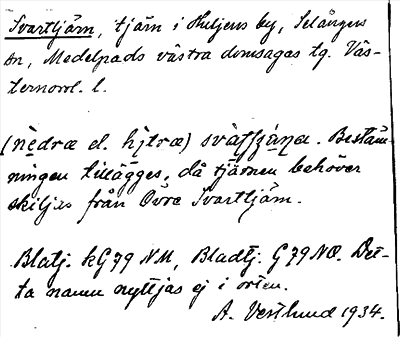 Svarttjärn, tjärn i Huljens by, Selångers
sn, Medelpads västra domsagas tg. Väs-
ternorrl. l.
(nèdræ el. hìtræ) svàʈʂɑ́ɳa. Bestäm-
ningen tillägges, då tjärnen behöver
skiljas från Övre Svarttjärn.
Blatj. kG79 NM, Bladtj. G79 NO. Det-
ta namn nyttjas ej i orten.
A. Vestlund 1934.